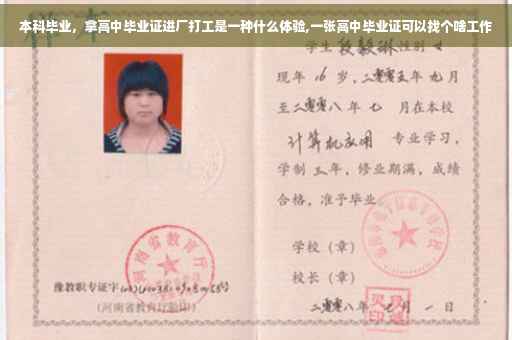 本科毕业，拿高中毕业证进厂打工是一种什么体验,一张高中毕业证可以找个啥工作
学生 段毅琳 性别 女
现年 16 岁，二零零五年 九月
至二零零八年 七 月在本校
计算机应用 专业学习，
学制 三 年，修业期满，成绩
合格，准予毕业
学校（章）
河南省教育厅
校长（章）
豫教职专证字
(河南省教育厅验印)
二零零八年 月 一 日